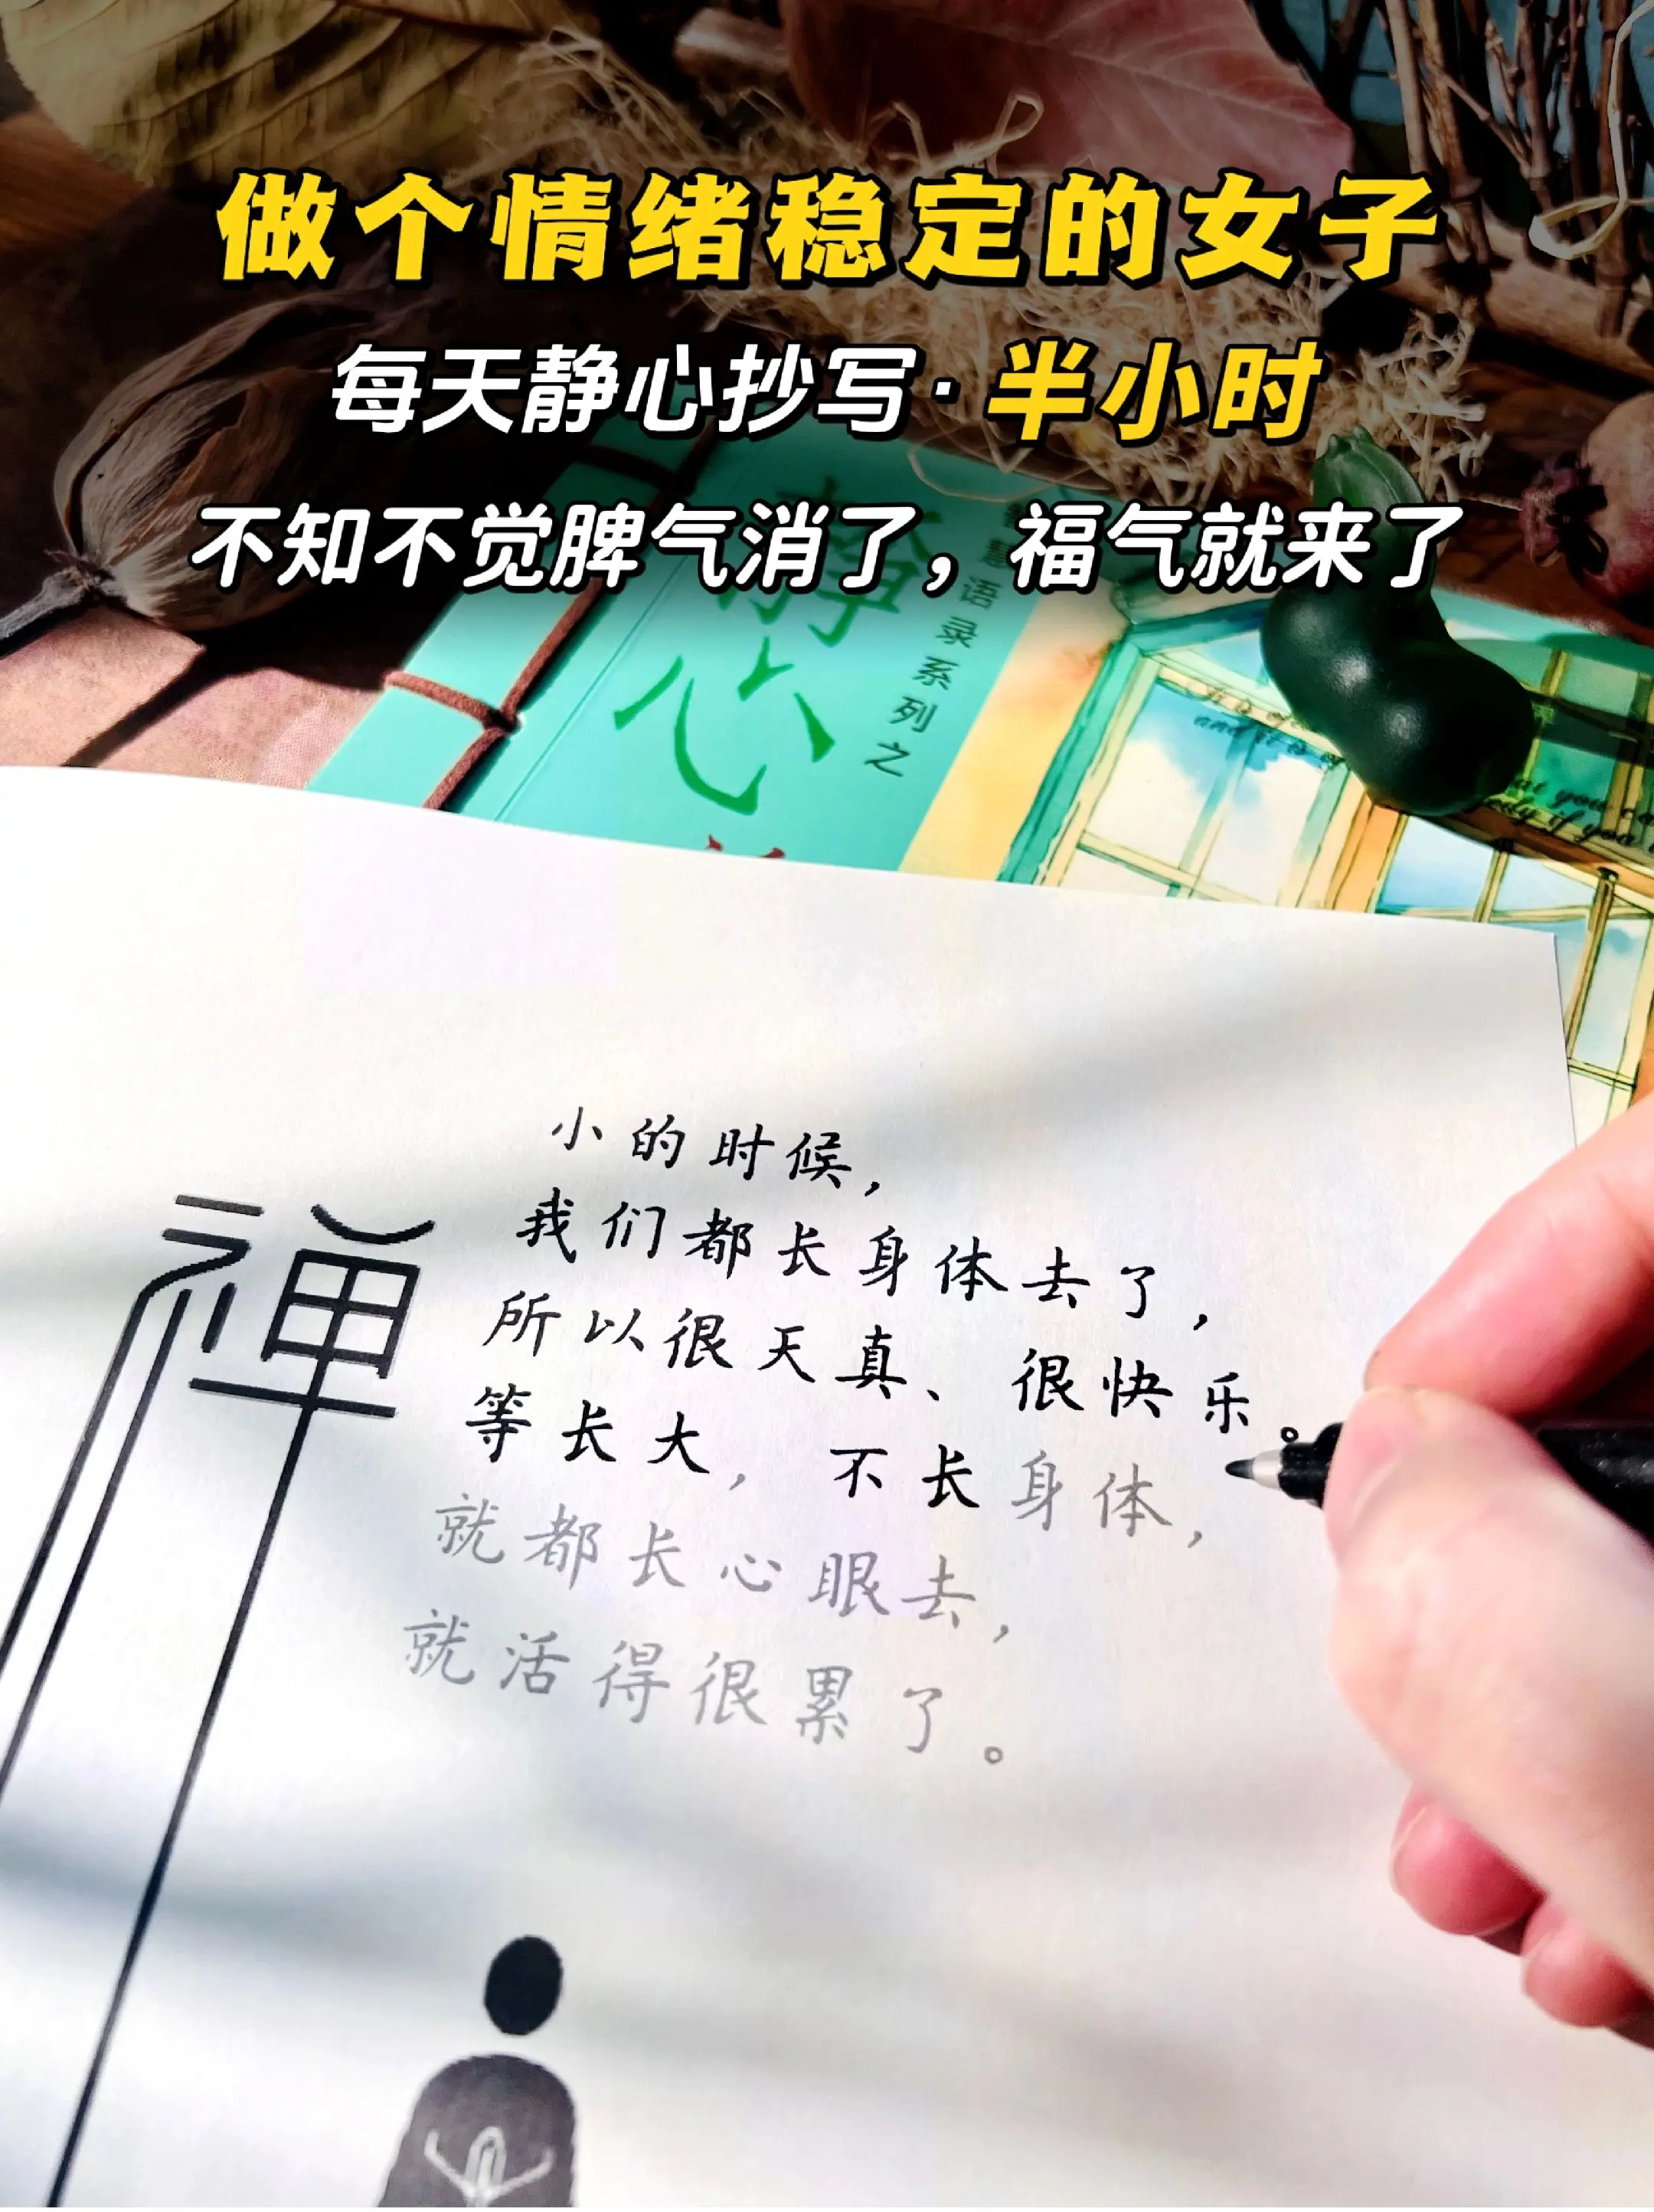 做个情绪稳定的女子
每天静心抄写·半小时
不知不觉脾气消了，福气就来了
静心
慧语录系列之
禅
小的时候，
我们都长身体去了，
所以很天真、很快乐。
等长大，不长身体，
就都长心眼去，
就活得很累了。